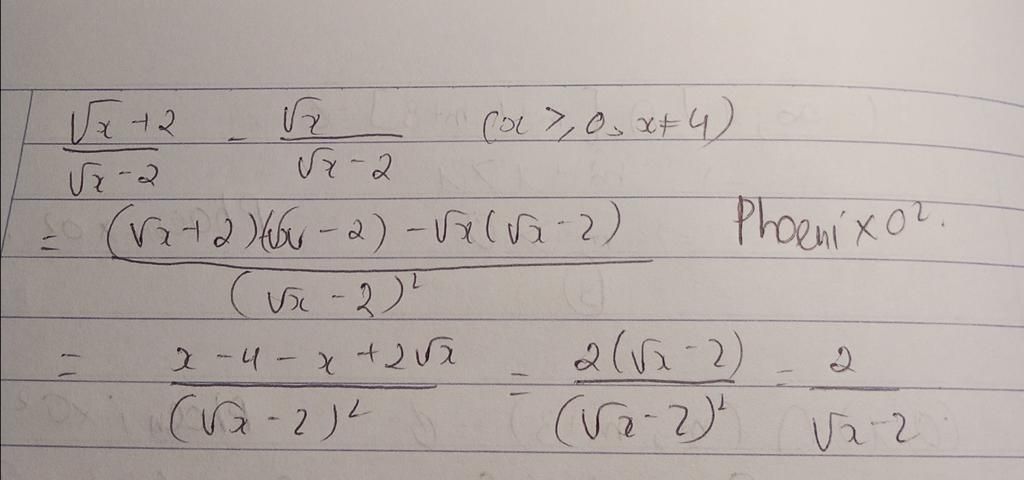 (√x + 2)/(√x - 2) - √x/(√x - 2) (x ⩾ 0, x ≠ 4)
= ((√x + 2)(√x - 2) - √x(√x - 2))/(√x - 2)² PhoenixO².
= (x - 4 - x + 2√x)/(√x - 2)² = 2(√x - 2)/(√x - 2)² = 2/(√x - 2)